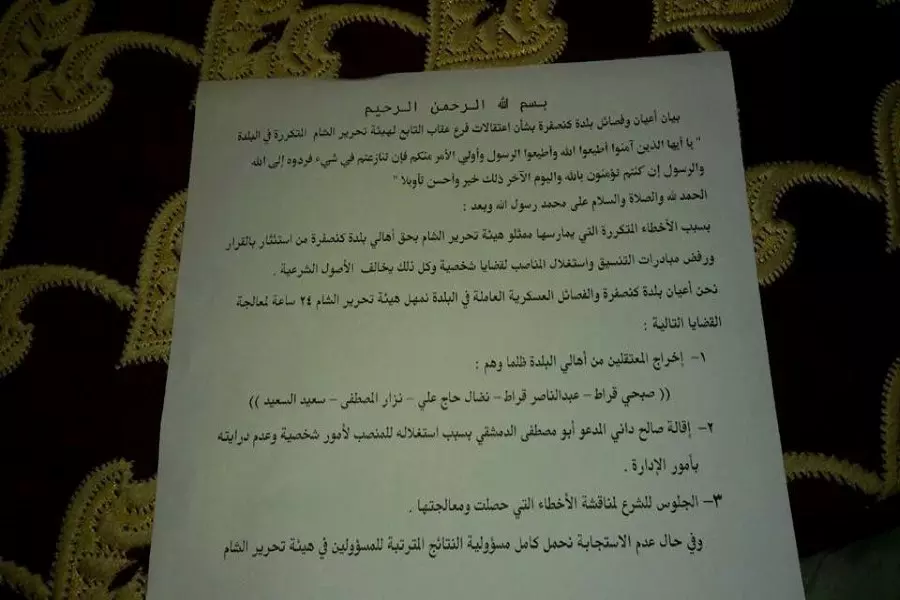 بسم الله الرحمن الرحيم
بيان أعيان وفصائل بلدة كنصفرة بشأن اعتقالات فرع عقاب التابع لهيئة تحرير الشام المتكررة في البلدة
" يا أيها الذين آمنوا أطيعوا الله وأطيعوا الرسول وأولي الأمر منكم فإن تنازعتم في شيء فردوه إلى الله
والرسول إن كنتم تؤمنون بالله واليوم الآخر ذلك خير وأحسن تأويلا "
الحمد لله والصلاة والسلام على محمد رسول الله وبعد :
بسبب الأخطاء المتكررة التي يمارسها ممثلو هيئة تحرير الشام بحق أهالي بلدة كنصفرة من استئثار بالقرار
ورفض مبادرات التنسيق واستغلال المناصب لقضايا شخصية وكل ذلك يخالف الأصول الشرعية .
نحن أعيان بلدة كنصفرة والفصائل العسكرية العاملة في البلدة نمهل هيئة تحرير الشام ٢٤ ساعة لمعالجة
القضايا التالية :
١- إخراج المعتقلين من أهالي البلدة ظلما وهم :
(( صبحي قراط – عبدالناصر قراط – نضال حاج علي – نزار المصطفى – سعيد السعيد ))
٢- إقالة صالح داني المدعو أبو مصطفى الدمشقي بسبب استغلاله للمنصب لأمور شخصية وعدم درايته
بأمور الإدارة .
٣- الجلوس للشرع لمناقشة الأخطاء التي حصلت ومعالجتها .
وفي حال عدم الاستجابة نحمل كامل مسؤولية النتائج المترتبة للمسؤولين في هيئة تحرير الشام